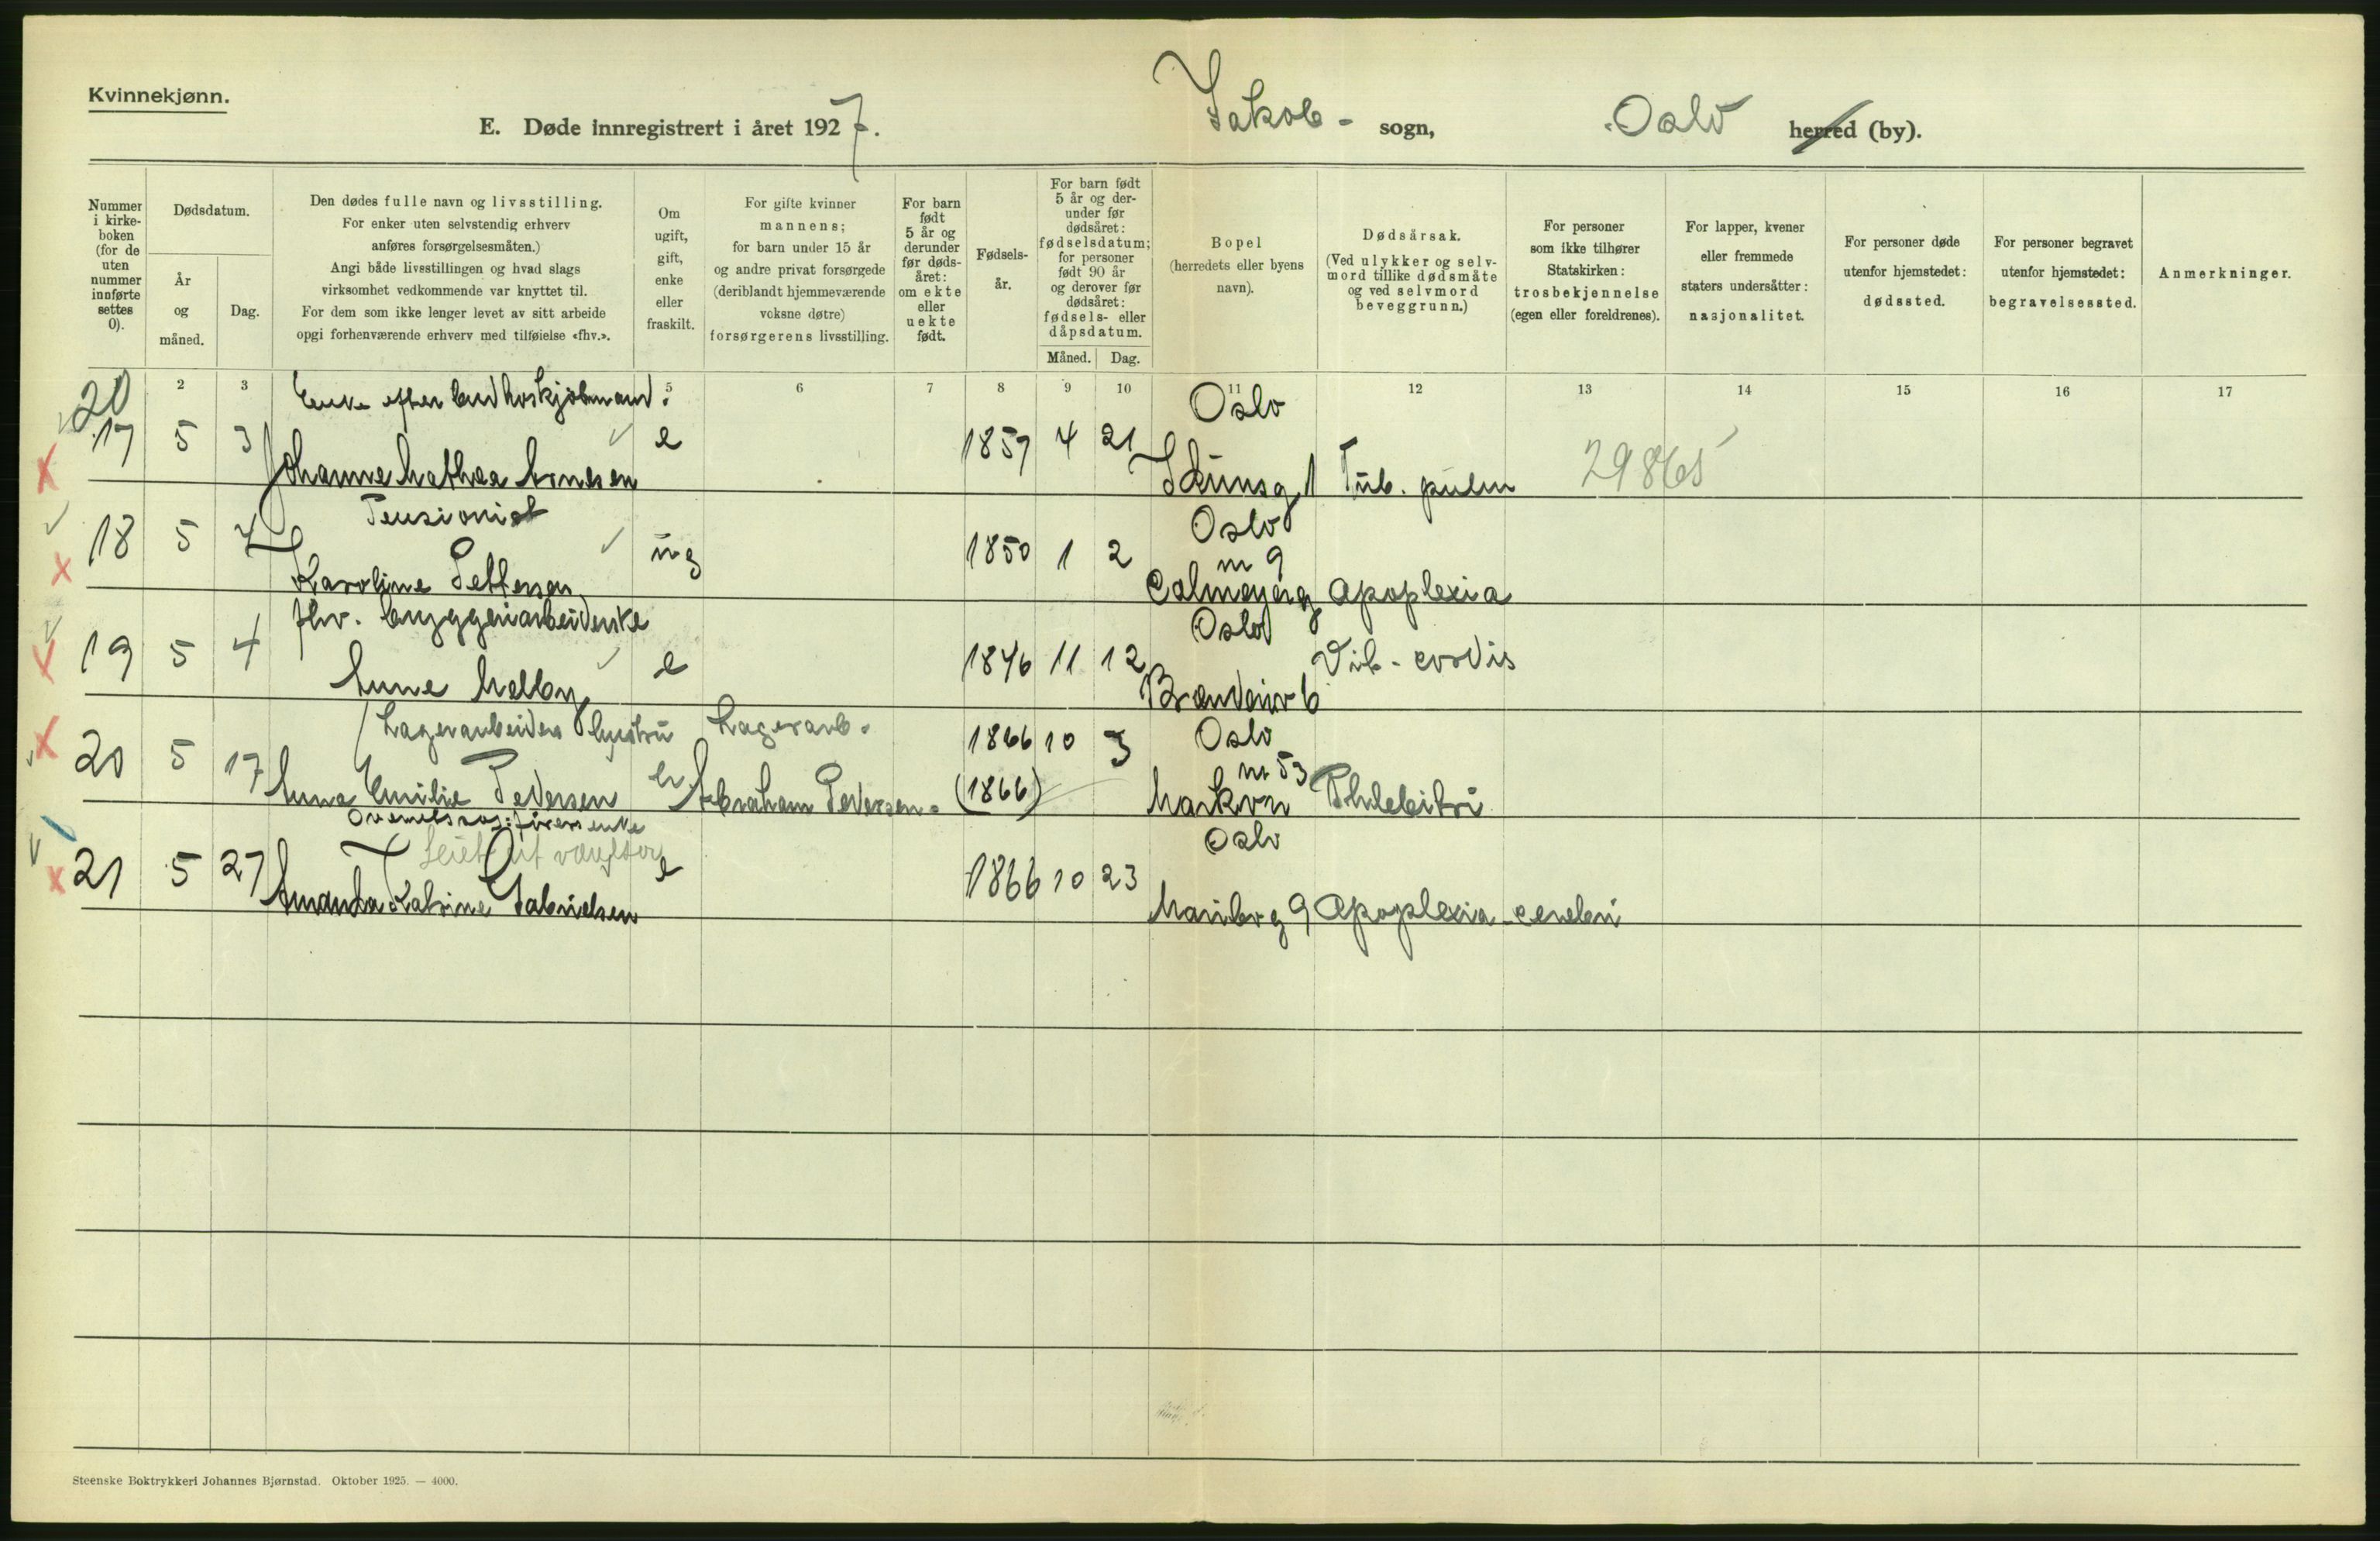 Kvinnekjønn.
E. Døde innregistrert i året 1927. Jakob - sogn, Oslo herred (by).
Nummer i kirkeboken (for de uten nummer innførte settes 0).
Dødsdatum.
År og måned.
Dag.
Den dødes fulle navn og livsstilling.
For enker uten selvstendig erhverv
anføres forsørgelsesmåten.)
Angi både livsstillingen og hvad slags
virksomhet vedkommende var knyttet til.
For dem som ikke lenger levet av sitt arbeide
opgi forhenværende erhverv med tilføielse «fhv.».
Om ugift, gift, enke eller fraskilt.
For gifte kvinner
mannens;
for barn under 15 år
og andre privat forsørgede
(deriblandt hjemmeværende
voksne døtre)
forsørgerens livsstilling.
For barn født 5 år og derunder før dødsåret: om ekte eller uekte født.
Fødselsår.
For barn født 5 år og derunder før dødsåret: fødselsdatum; for personer født 90 år og derover før dødsåret: fødsels- eller dåpsdatum.
Måned. Dag.
Bopel
(herredets eller byens
navn).
Dødsårsak.
(Ved ulykker og selvmord tillike dødsmåte og ved selvmord beveggrunn.)
For personer
som ikke tilhører
Statskirken:
trosbekjennelse
(egen eller foreldrenes).
For lapper, kvener
eller fremmede
staters undersåtter:
nasjonalitet.
For personer døde
utenfor hjemstedet:
dødssted.
For personer begravet
utenfor hjemstedet:
begravelsessted.
Anmerkninger.
20 2 3 5 6 7 8 9 10 11 12 13 14 15 16 17
Enke efter Oslo
17 5 3 e 1859 4 21
Johanne Mathea Arnesen 1 Tub. pulm 29865
Pensionist Oslo
18 5 7 ug 1850 1 2 nr 9
Karoline Pettersen Calmeyerg Apoplexia
fhv. bryggeriarbeiderske Oslo
19 5 4 e 1846 11 12 Vit. cordis
Anne Melby 6
Lagerarbeiders hustru Lagerarb. 1866 10 3 Oslo
20 5 17 nr 53
Anna Emilie Pedersen Abraham Pedersen. (1866) Markvn
enke Oslo
21 5 27 e 1866 10 23
Amanda Katrine Gabrielsen Maribog 9 Apoplexia cerebri
Steenske Boktrykkeri Johannes Bjørnstad. Oktober 1925. — 4000.